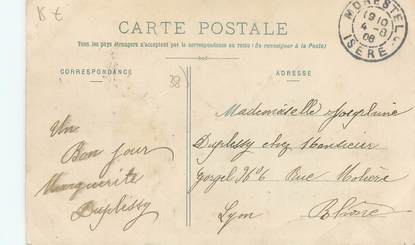 K €
CARTE POSTALE
Tous les pays étrangers n'acceptent pas la correspondance au recto (Se renseigner à la Poste)
CORRESPONDANCE
38
ADRESSE
MORESTEL
19 10
4 - 8
08
ISÈRE
Un
Bon jour
Marguerite
Duplissy
Mademoiselle Josephine
Duplissy chez
N° 6 Rue Molière
Lyon Rhône